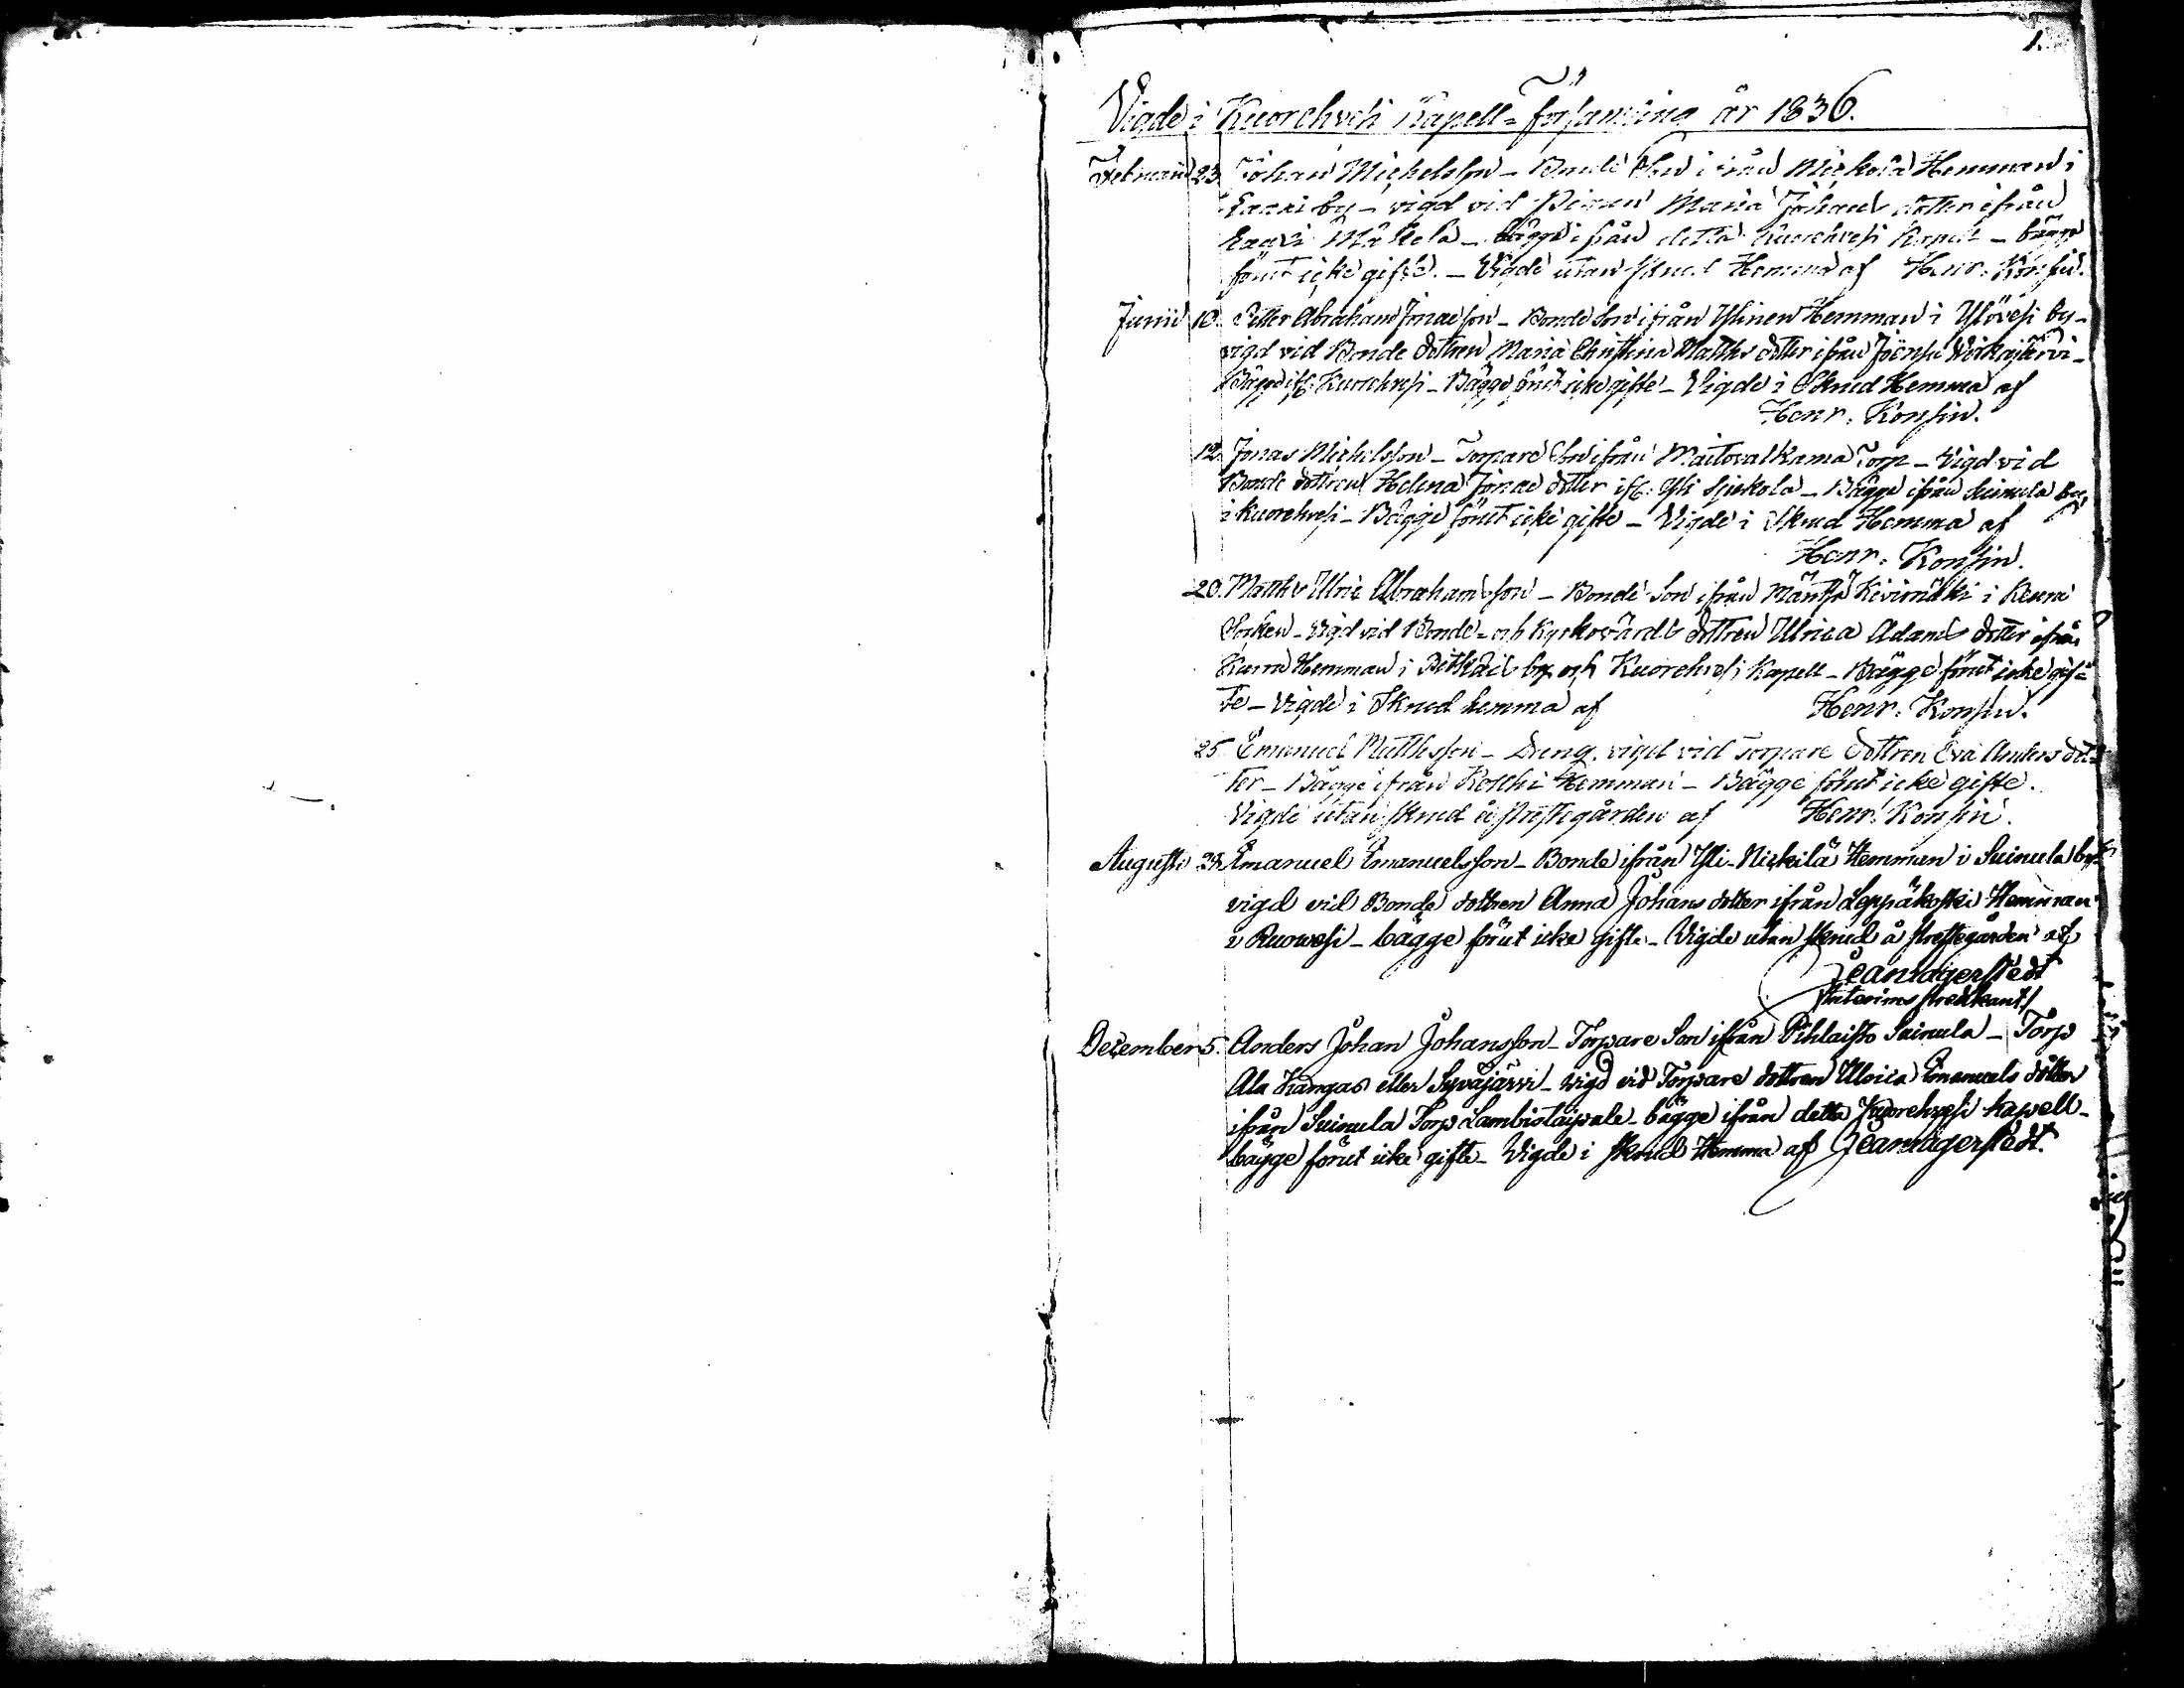 1.
Vigde i Kuorehvesi Kapell-Församling år 1836.
Februarii 23. Johan Michelsson - Bonde Son ifrån Mickola Hemman i
by - vigd vid Pigan Maria Johans dotter ifrån
Mäkelä - bägge ifrån detta Kuorehvesi Kapell - bägge
förut icke gifte. - Vigde utan skrud Hemma af Henr. Konsin.
Junii 10. Petter Abraham Jonasson - Bonde Son ifrån Ylinen Hemman i Ylövesi by -
vigd vid Bonde dottren Maria Christina Matths dotter ifrån
Bägge ifr. Kuorehvesi - Bägge förut icke gifte - Vigde i Skrud Hemma af
Henr. Konsin.
12. Jonas Michelsson - Torpare Son ifrån Maitovalkama Torp - Vigd vid
Bonde dottren Helena Jonae dotter ifr. Yli - Bägge ifrån Suinula by
i Kuorehvesi - Bägge förut icke gifte - Vigde i Skrud Hemma af
Henr. Konsin.
20. Matths Ulric Abrahamsson - Bonde Son ifrån Mänttä i Keuru
Socken - Vigd vid Bonde- och Kyrkovärds dottren Ulrica Adams dotter ifrån
Hemman i by och Kuorehvesi Kapell - Bägge förut icke gif-
te - Vigde i Skrud hemma af Henr. Konsin.
25. Emanuel Matthsson - Dreng, vigd vid Torpare dottren Eva Anders dot-
ter - Bägge ifrån Koski Hemman - Bägge förut icke gifte.
Vigde utan skrud å prestegården af Henr. Konsin.
Augusti 28. Emanuel Emanuelsson - Bonde ifrån Yli-Nickilä Hemman i Suinula by
vigd vid Bonde dottren Anna Johans dotter ifrån Leppäkoski Hemman
i Ruowesi - bägge förut icke gifte - Vigde utan skrud å prestegården af
Jean Lagerstedt
Interims predikant/
December 5. Anders Johan Johansson - Torpare Son ifrån Pihlaisto Suinula - Torp
Ala Kangas eller Syväjärvi - vigd vid Torpare dottren Ulrica Emanuels dotter
ifrån Suinula Torp Lambistaipale - bägge ifrån detta Kuorehvesi Kapell -
bägge förut icke gifte - Vigde i skrud Hemma af Jean Lagerstedt.